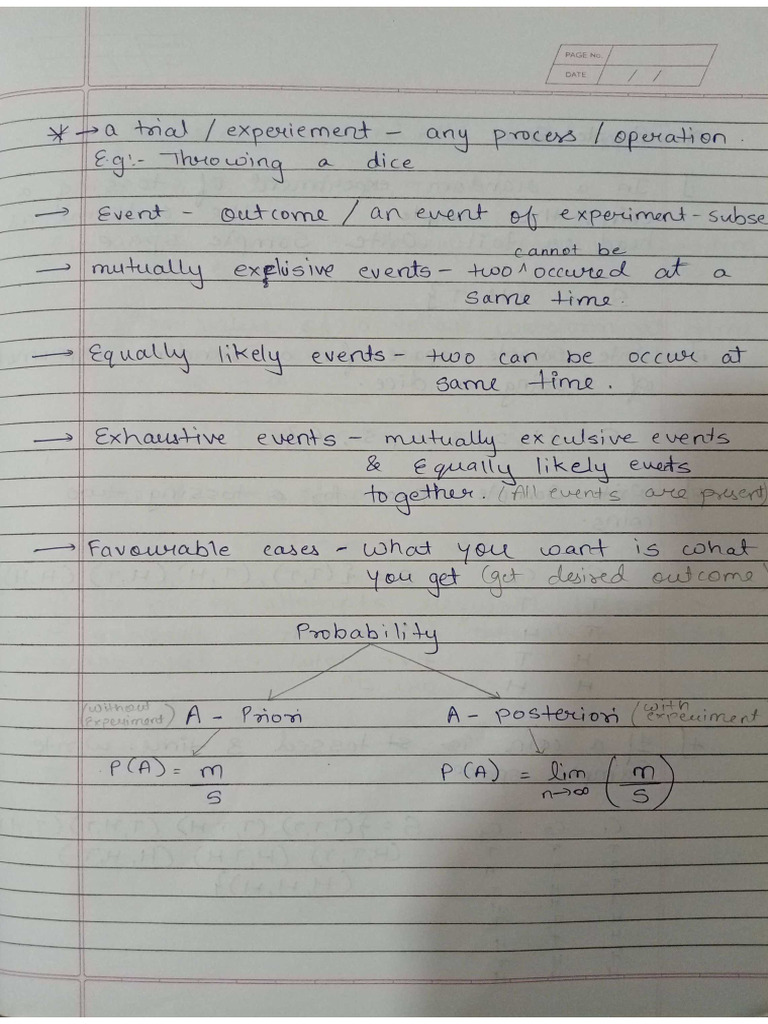 PAGE No.
DATE / /
* → a trial / experiement - any process / operation.
E.g:- Throwing a dice
→ Event - outcome / an event of experiment - subse
cannot be
→ mutually exclusive events - two ^ occured at a
same time.
→ Equally likely events - two can be occur at
same time.
→ Exhaustive events - mutually exculsive events
& Equally likely evets
together. (All events are present)
→ Favourable cases - what you want is what
you get (get desired outcome)
Probability
(without Experiment) A - Priori
A - posteriori (with experiment
P(A) = m/s
P(A) = lim n→∞ (m/s)